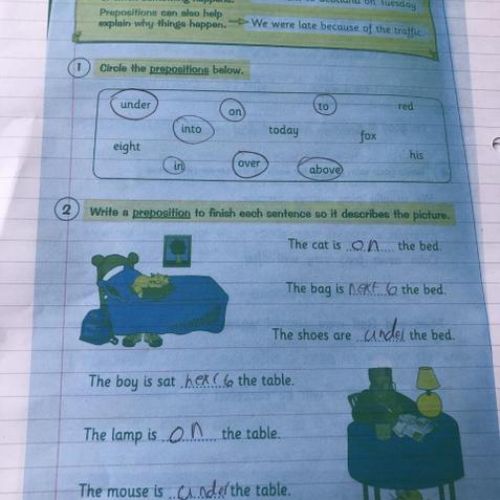 Prepositions can also help
explain why things happen.
We were late because of the traffic.
1 Circle the prepositions below.
under on to red
into today fox
eight his
in over above
2 Write a preposition to finish each sentence so it describes the picture.
The cat is on the bed.
The bag is next to the bed.
The shoes are under the bed.
The boy is sat next to the table.
The lamp is on the table.
The mouse is under the table.